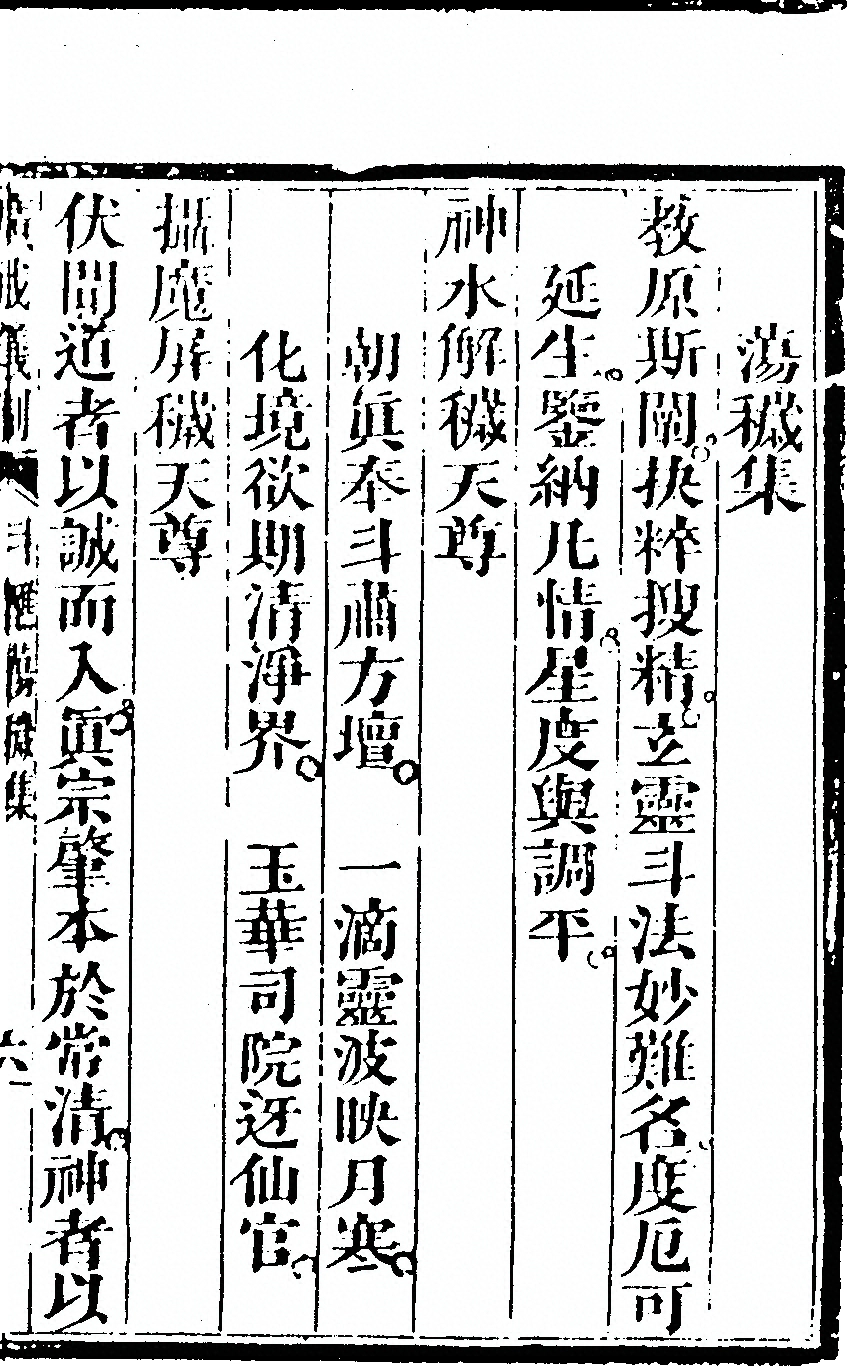 蕩穢集
教原斯闡抉粹搜精立靈斗法妙難名度厄可
延生鑒納凡情星度與調平
神水解穢天尊
朝眞奉斗肅方壇 一滴靈波映月寒
化境欲期清淨界 玉華司院迓仙官
攝魔屏穢天尊
伏聞道者以誠而入眞宗肇本於常清神者以
集